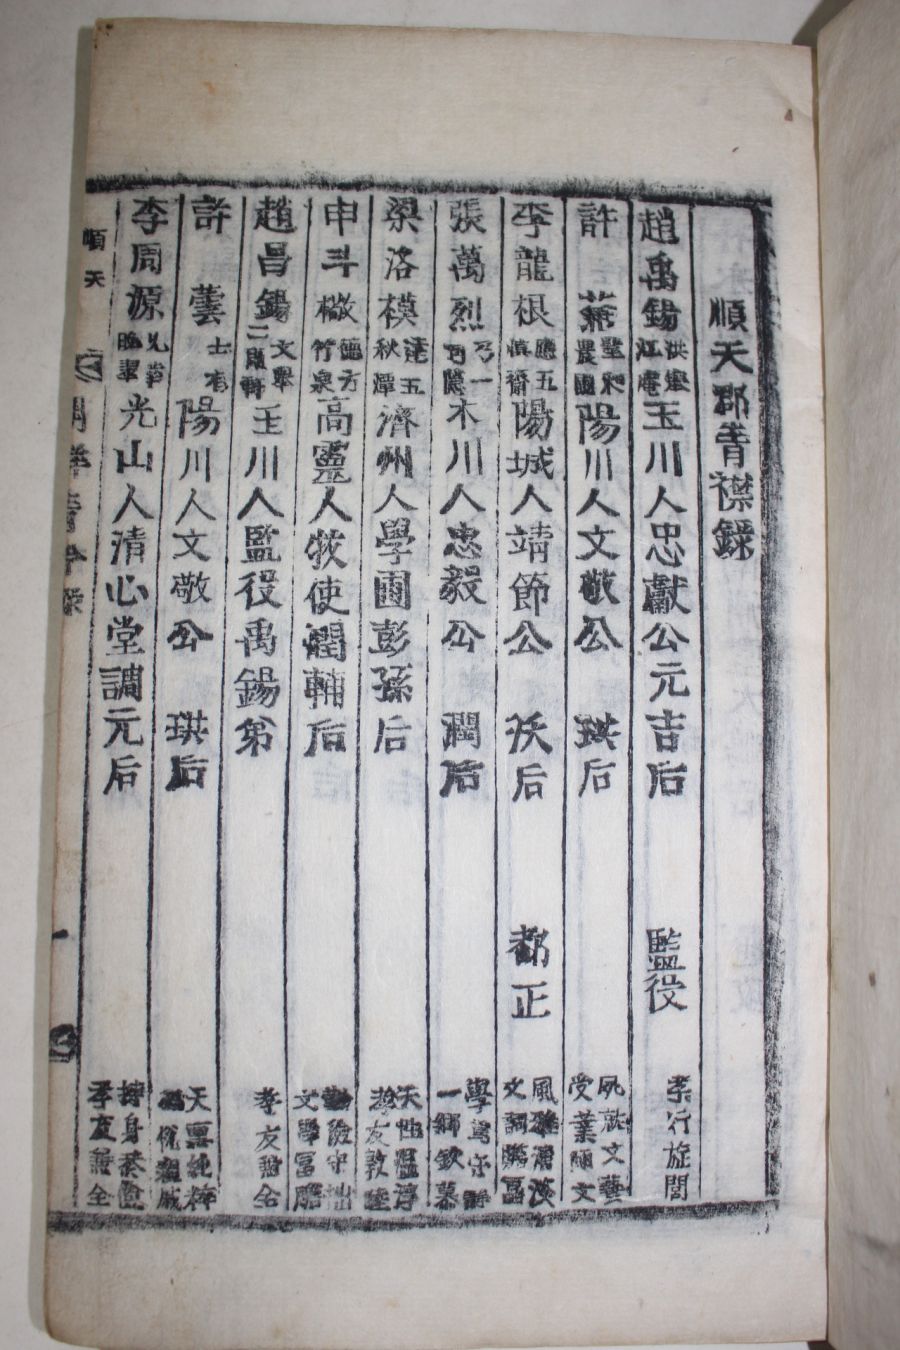 順天郡青襟錄
趙禹錫 洪舉 江庵 玉川人忠獻公元吉后 監役 孝行旋閭
許 聖和 農圃 陽川人文敬公 琪后 夙就文藝 受業師文
李龍根 應五 愼齋 陽城人靖節公 后 都正 風 文詞
張萬烈 乃一 隱 木川人忠毅公 潤后 學篤守靜 一鄉欽慕
梁洛模 五 秋潭 濟州人學圃彭孫后 天性溫淳 孝友敦睦
申斗檄 德方 竹泉 高靈人牧使潤輔后 儉守拙 文學富贍
趙昌錫 文舉 二顧軒 玉川人監役禹錫弟 孝友兼全
許 蕓 士有 陽川人文敬公 琪后 天稟純粹
李周源 光山人清心堂調元后 持身恭儉 孝友兼全
順天
一